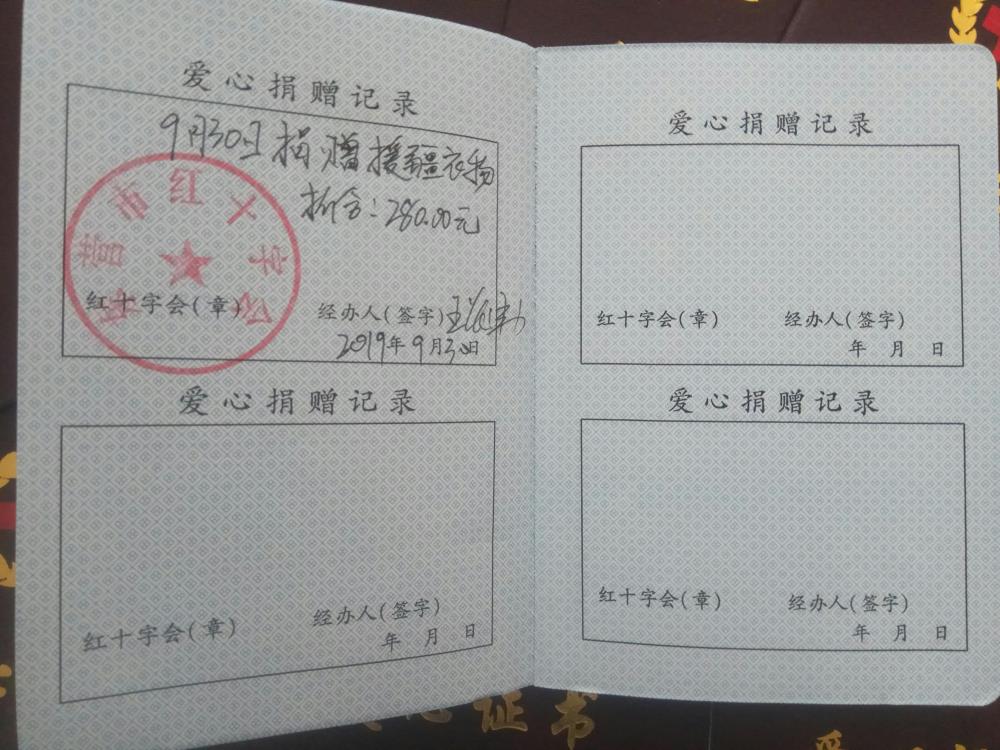 爱心捐赠记录
9月30日捐赠援疆衣物
折合：280.00元
市红十字会
红十字会(章)
经办人(签字)
2019年9月30日
爱心捐赠记录
红十字会(章)
经办人(签字)
年 月 日
爱心捐赠记录
红十字会(章)
经办人(签字)
年 月 日
爱心捐赠记录
红十字会(章)
经办人(签字)
年 月 日
心证书
爱